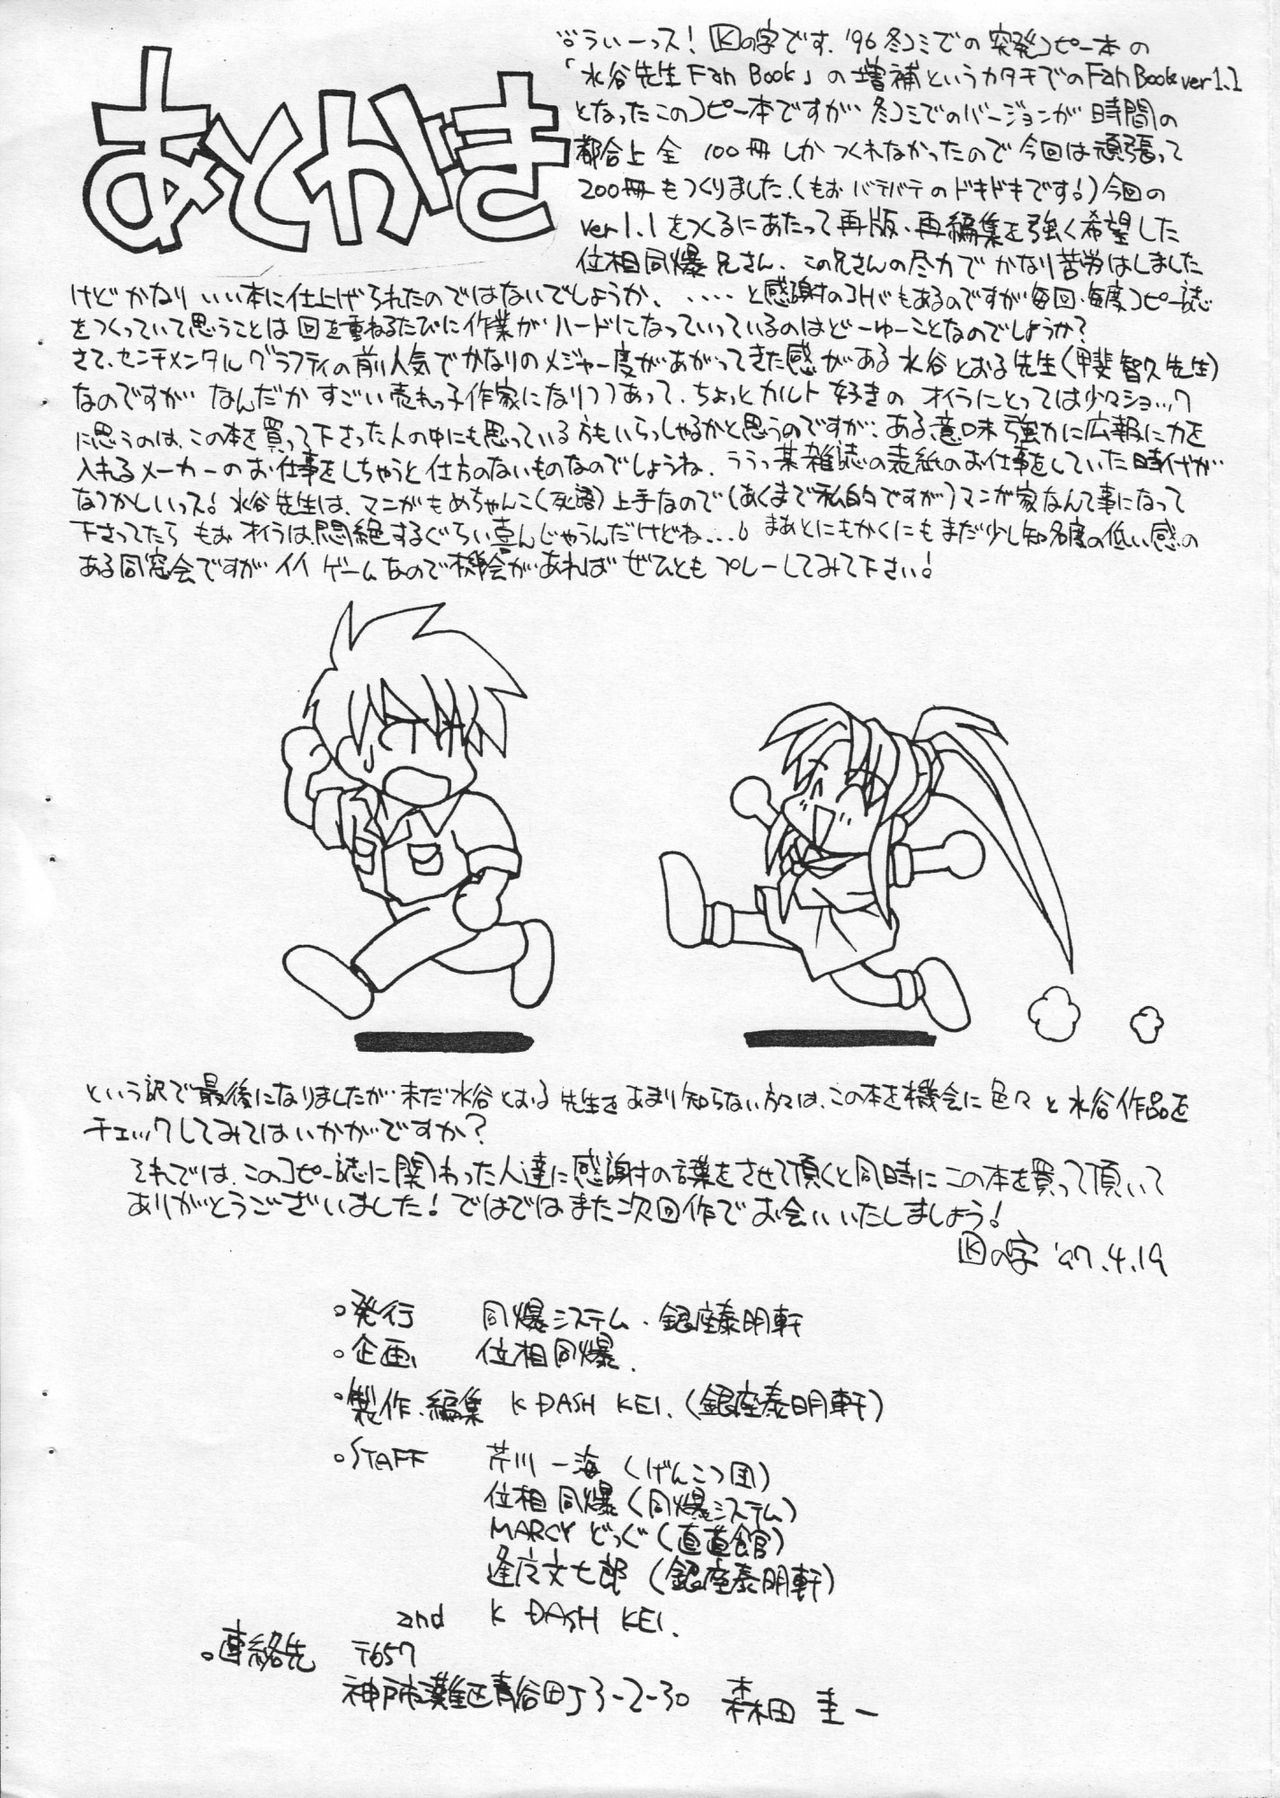 あとがき
うぃーっス! Kの字です。'96冬コミでの突発コピー本の
「水谷先生 Fan Book」の増補というカタチでのFan Book ver 1.1
となったこのコピー本ですが冬コミでのバージョンが時間の
都合上全100冊しかつくれなかったので今回は頑張って
200冊もつくりました。(もおバテバテのドキドキです。)今回の
ver 1.1をつくるにあたって再版、再編集を強く希望した
位相同爆兄さん、この兄さんの尽力でかなり苦労はしました
けどかなりいい本に仕上げられたのではないでしょうか、‥‥と感謝の もあるのですが毎回、毎度コピー誌
をつくっていて思うことは回を重ねるたびに作業がハードになっていっているのはどーゆーことなのでしょうか?
さて、センチメンタルグラフティの前人気でかなりのメジャー度があがってきた感がある水谷とおる先生(甲斐智久先生)
なのですがなんだかすごい売れっ子作家になりつつあって、ちょっとカルト好きのオイラにとっては少々ショック
に思うのは、この本を買って下さった人の中にも思っている方もいらっしゃるかと思うのですが、ある意味強力に広報に力を
入れるメーカーのお仕事をしちゃうと仕方のないものなのでしょうね、ううっ某雑誌の表紙のお仕事をしていた時代が
なつかしいっス! 水谷先生は、マンガもめちゃんこ(死語)上手なので(あくまで私的ですが)マンガ家なんて事になって
下さってたらもおオイラは、悶絶するぐらい喜んじゃうんだけどね…。まあとにもかくにもまだ少し知名度の低い感の
ある同窓会ですがイイゲームなので機会があればぜひともプレーしてみて下さい!
という訳で最後になりましたが、未だ水谷とおる先生をあまり知らない方々は、この本を機会に色々と水谷作品を
チェックしてみてはいかがですか?
それでは、このコピー誌に関わった人達に感謝の言葉をさせて頂くと同時にこの本を買って頂いて
ありがとうございました! ではではまた次回作でお会いいたしましょう!
Kの字 '97.4.19
。発行 同爆システム・銀座泰明軒
。企画 位相同爆
。製作・編集 K DASH KEI.(銀座泰明軒)
。STAFF 芹川一海(げんこつ団)
位相同爆(同爆システム)
MARCY どっぐ(直道館)
逢 文七郎(銀座泰明軒)
and K DASH KEI.
。連絡先 〒657
神戸市灘区青谷町3-2-30 森田圭一